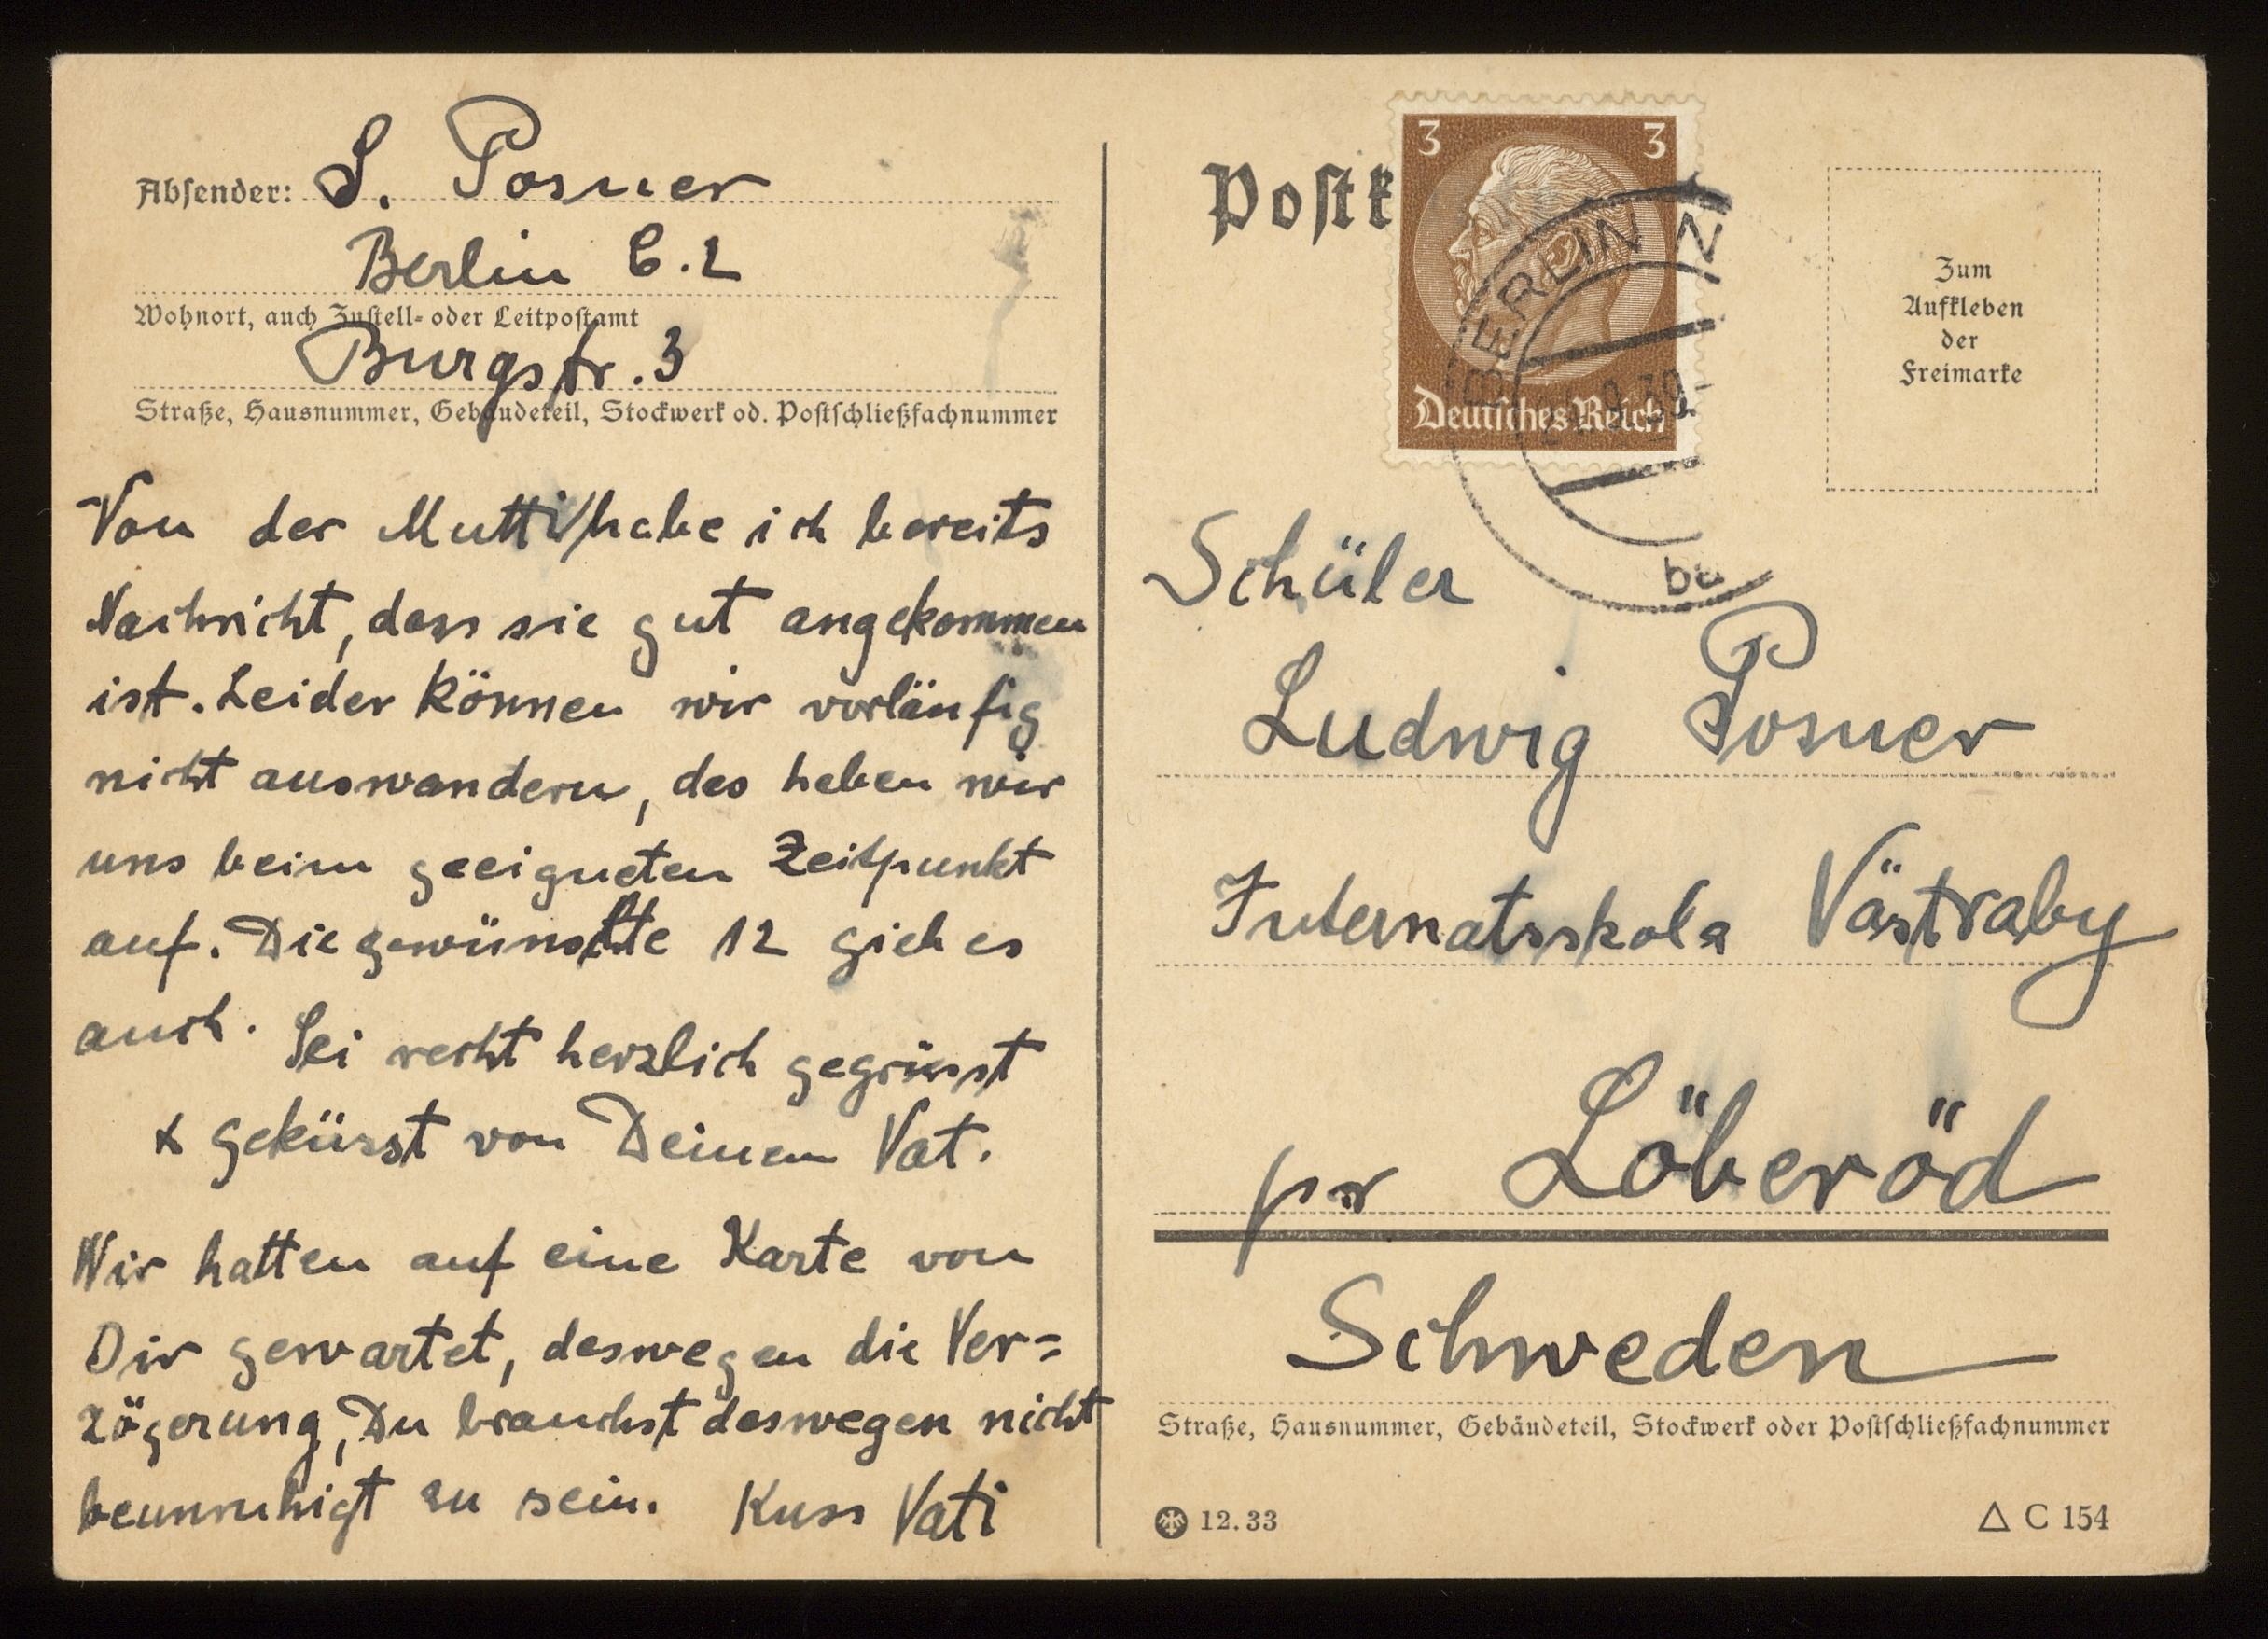 Absender: S. Posner
Berlin C.2
Wohnort, auch Zustell- oder Leitpostamt
Burgstr. 3
Straße, Hausnummer, Gebäudeteil, Stockwerk od. Postschließfachnummer
Von der Mutti habe ich bereits
Nachricht, dass sie gut angekommen
ist. Leider können wir vorläufig
nicht auswandern, das heben wir
uns beim geeigneten Zeitpunkt
auf. Die gewünschte 12 gieb es
auch. Sei recht herzlich gegrüsst
& geküsst von Deinem Vat.
Wir hatten auf eine Karte von
Dir gewartet, deswegen die Ver=
zögerung, Du brauchst deswegen nicht
beunruhigt zu sein. Kuss Vati
Postk
3 3
Deutsches Reich
BERLIN N
Zum
Aufkleben
der
Freimarke
Schüler
Ludwig Posner
Internatsskola Västraby
pr Löberöd
Schweden
Straße, Hausnummer, Gebäudeteil, Stockwerk oder Postschließfachnummer
12.33
△ C 154